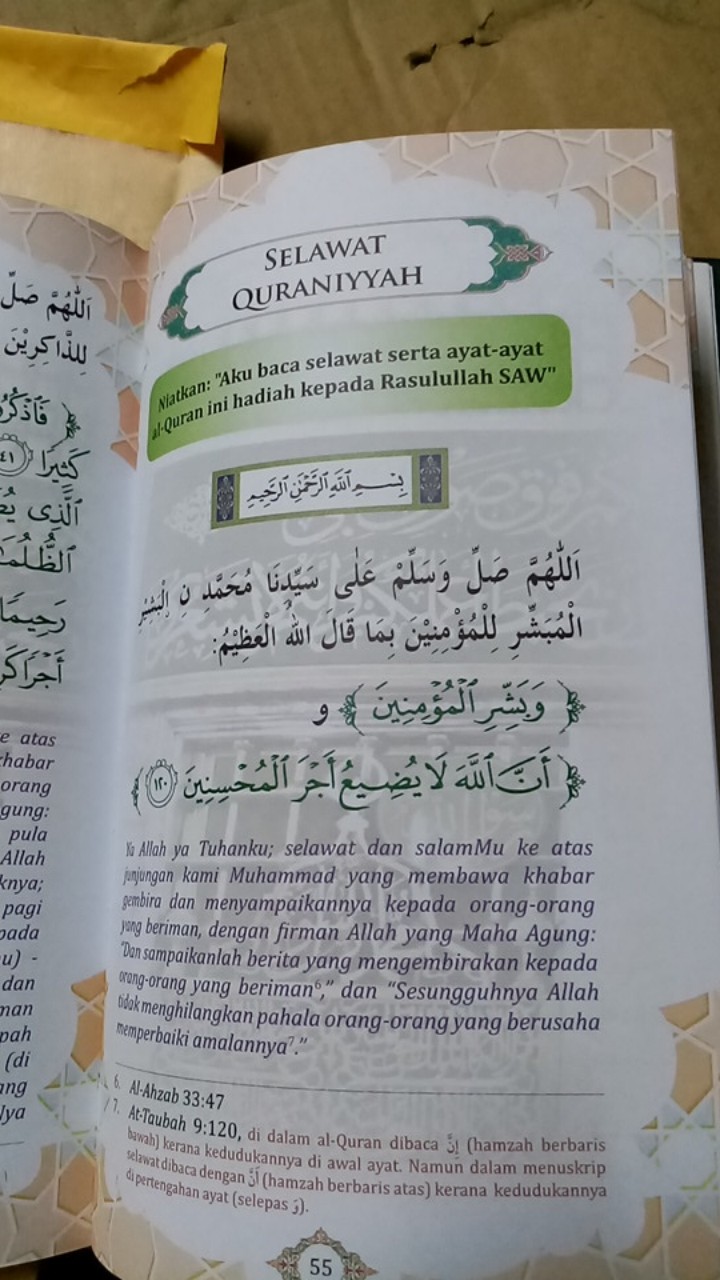 اَللّٰهُمَّ صَلِّ
لِلذَّاكِرِيْنَ
فَٱذۡكُرُو
كَثِيرٗا ٤١
ٱلَّذِي
ٱلظُّلُمَٰ
رَحِيمٗا
أَجۡرٗا
e atas
khabar
orang
gung:
pula
Allah
knya;
pagi
pada
u) -
dan
man
pah
(di
ang
lya
SELAWAT
QURANIYYAH
Niatkan: "Aku baca selawat serta ayat-ayat
al-Quran ini hadiah kepada Rasulullah SAW"
بِسْمِ اللَّهِ الرَّحْمَٰنِ الرَّحِيمِ
اَللّٰهُمَّ صَلِّ وَسَلِّمْ عَلٰى سَيِّدِنَا مُحَمَّدِ نِ الْبَشِيْرِ
الْمُبَشِّرِ لِلْمُؤْمِنِيْنَ بِمَا قَالَ اللهُ الْعَظِيْمُ:
﴿وَبَشِّرِ ٱلۡمُؤۡمِنِينَ﴾ و
﴿أَنَّ ٱللَّهَ لَا يُضِيعُ أَجۡرَ ٱلۡمُحۡسِنِينَ ١٢٠﴾
Ya Allah ya Tuhanku; selawat dan salamMu ke atas
junjungan kami Muhammad yang membawa khabar
gembira dan menyampaikannya kepada orang-orang
yang beriman, dengan firman Allah yang Maha Agung:
"Dan sampaikanlah berita yang mengembirakan kepada
orang-orang yang beriman⁶," dan "Sesungguhnya Allah
tidak menghilangkan pahala orang-orang yang berusaha
memperbaiki amalannya⁷."
6. Al-Ahzab 33:47
7. At-Taubah 9:120, di dalam al-Quran dibaca إِنَّ (hamzah berbaris
bawah) kerana kedudukannya di awal ayat. Namun dalam menuskrip
selawat dibaca dengan أَنَّ (hamzah berbaris atas) kerana kedudukannya
di pertengahan ayat (selepas وَ).
55